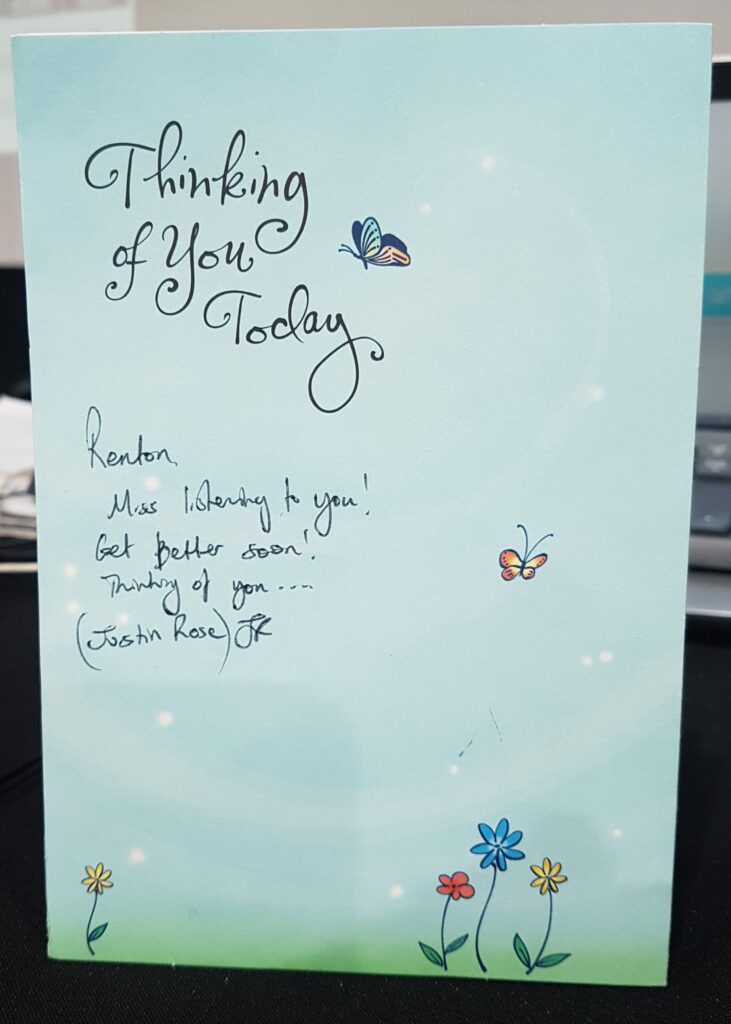 Thinking
of You
Today
Renton,
Miss listening to you!
Get Better soon!
Thinking of you....
(Justin Rose) JR